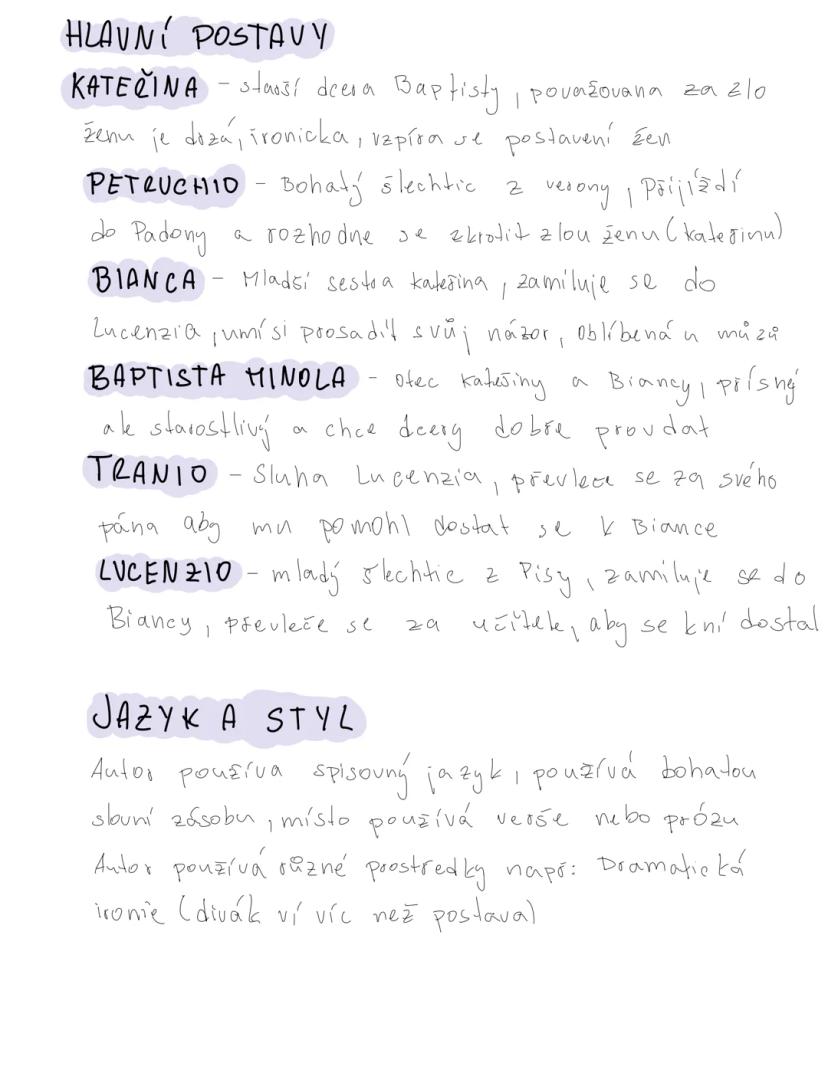 HLAVNÍ POSTAVY
KATEŘINA - starší dcera Baptisty, považovana za zlo
ženu je drzá, ironicka, vzpíra se postavení žen
PETRUCHIO - Bohatý šlechtic z verony, Přijíždí
do Padony a rozhodne se zkrotit zlou ženu (kateřinu)
BIANCA - Mladší sestra kateřina, zamiluje se do
Lucenzia, umí si prosadit svůj názor, oblíbená u můžů
BAPTISTA MINOLA - otec kateřiny a Biancy, přísný
ale starostlivý a chce dcery dobře provdat
TRANIO - Sluha Lucenzia, převlece se za svého
pána aby mu pomohl dostat se k Biance
LUCENZIO - mladý šlechtic z Pisy, zamiluje se do
Biancy, převleče se za učitele, aby se kní dostal
JAZYK A STYL
Autor používa spisovný jazyk, používá bohatou
slovní zásobu, místo používá verše nebo prózu
Autor používá různé prostředky např: Dramatická
ironie (divák ví víc než postava)